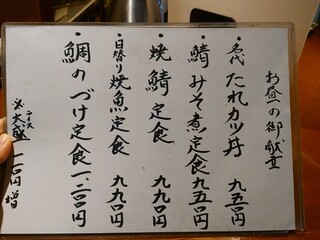 お昼の御献立
・名代 たれカツ丼 九五〇円
・鯖みそ煮定食 九五〇円
・焼鯖定食 九九〇円
・日替り焼魚定食 九九〇円
・鯛のづけ定食 一、二〇〇円
大盛 一一〇円増